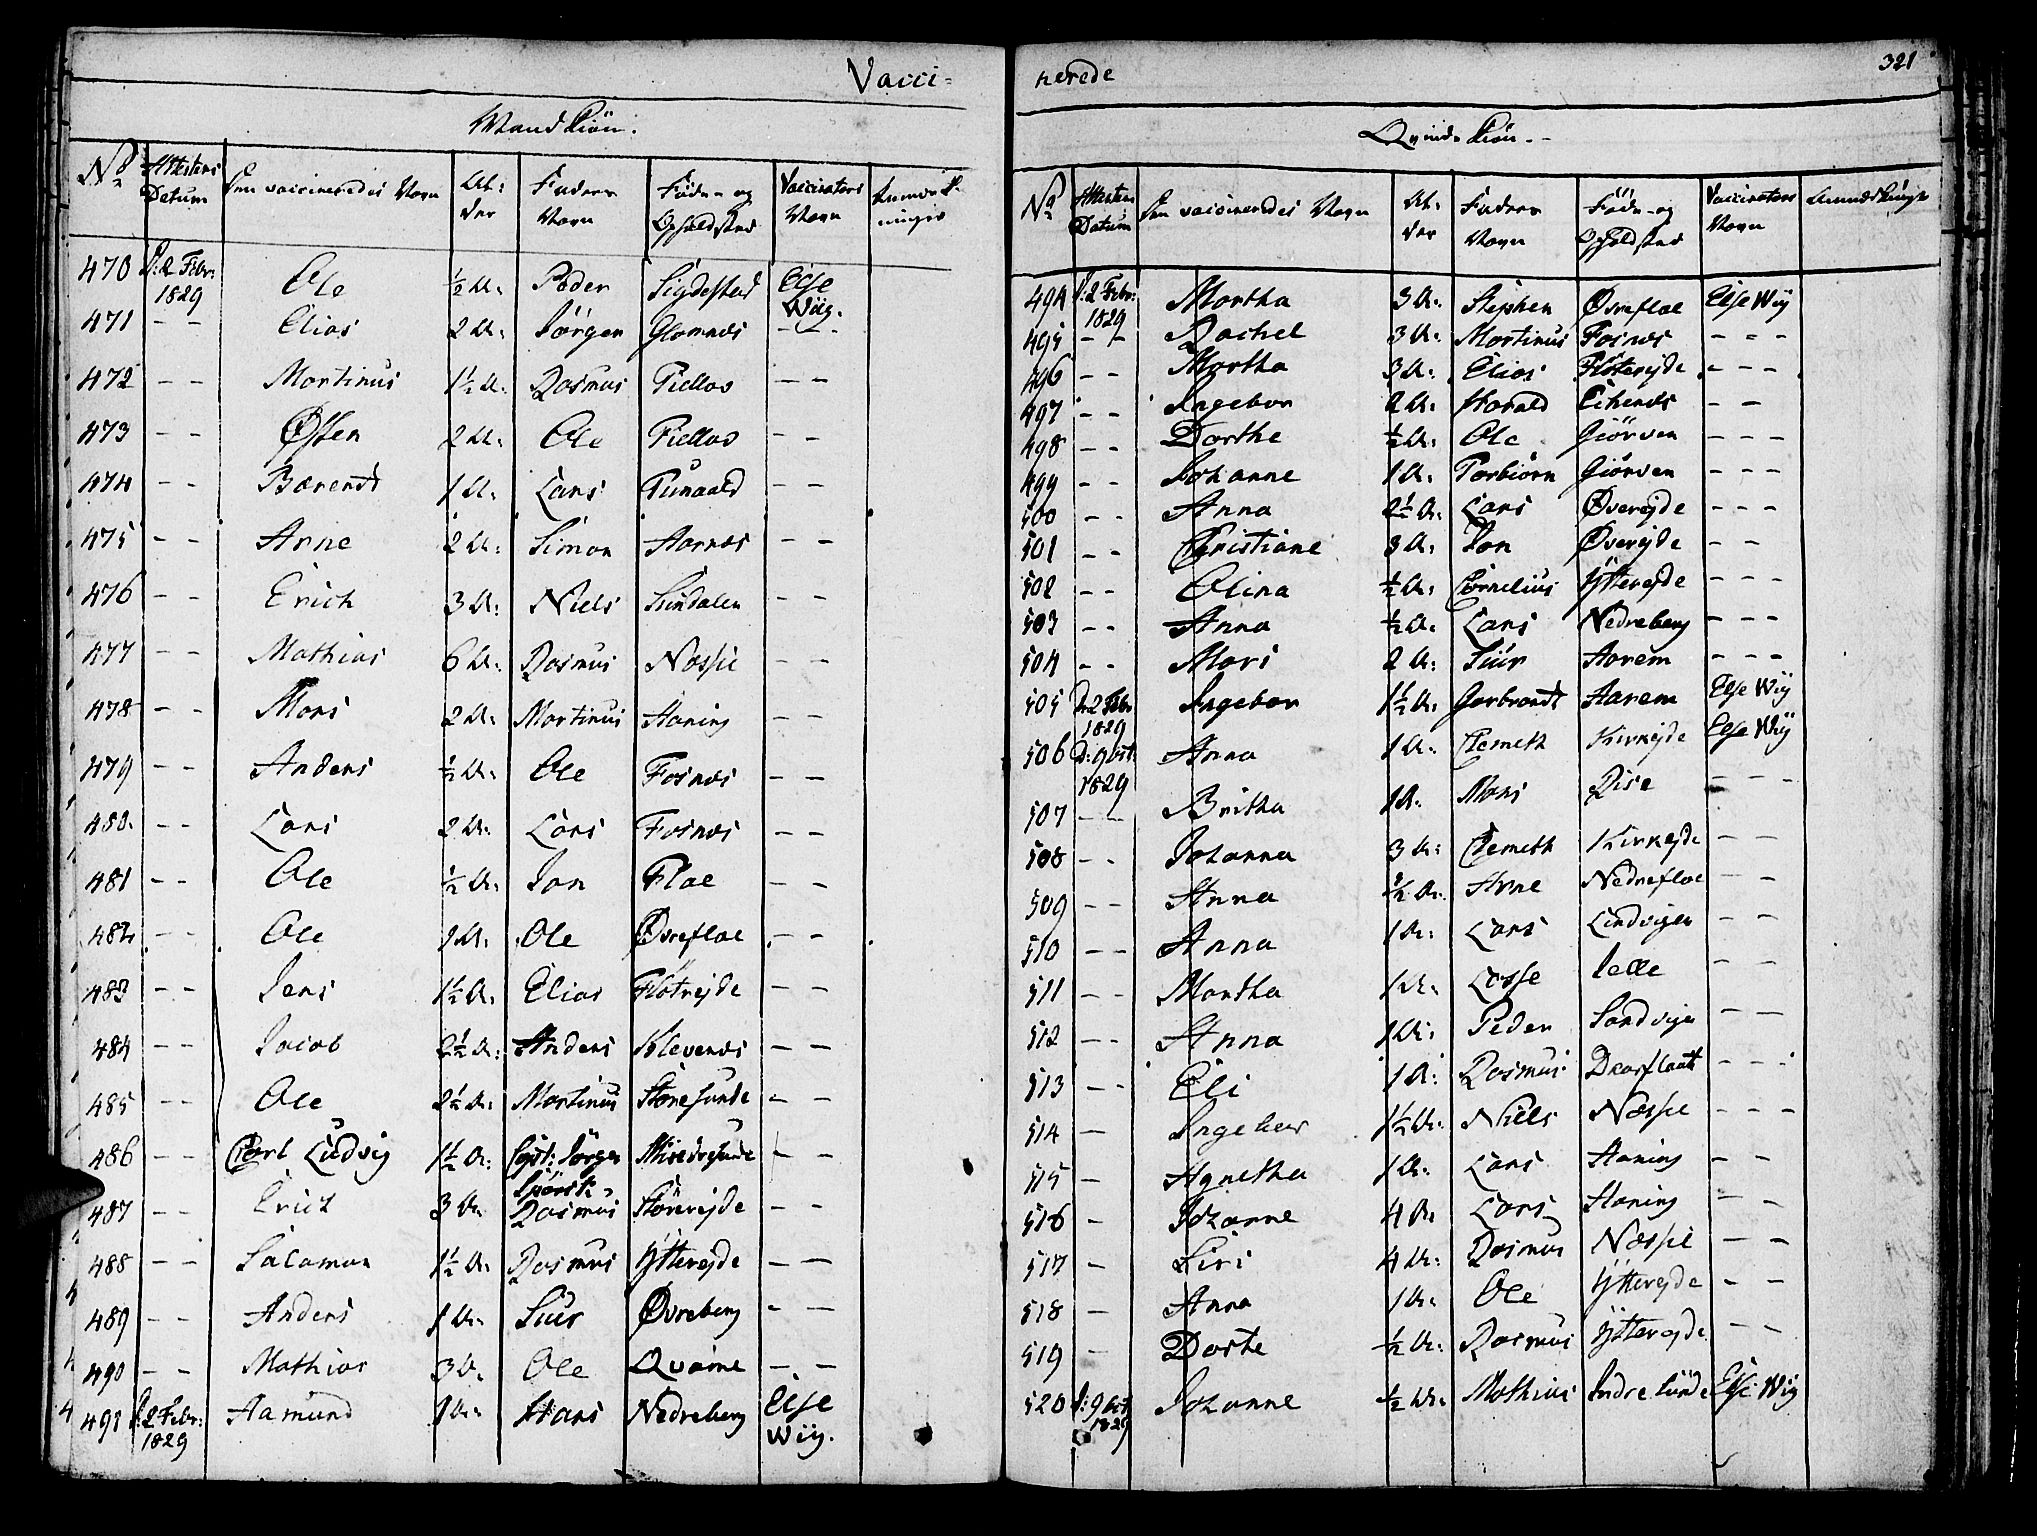 Vacci=
Mandkiön.
No Attestens Datum Den vaccineredes Navn Al: der Faders Navn Föde- og Opholdsted Vaccinators Navn Anmærk- ninger
470 D: 2 Febr: 1829 Ole ½ A: Peder Sigdestad Else Wiig.
471 - - Elias 2 A: Jörgen Glomnæs - -
472 - - Martinus 1½ A: Rasmus Tiellas - -
473 - - Østen 2 A: Ole Tiellas - -
474 - - Bærendt 1 A: Lars Tunaald - -
475 - - Arne 2 A: Simon Aarnæs - -
476 - - Erich 3 A: Niels Sundalen - -
477 - - Mathias 6 A: Rasmus Næsje - -
478 - - Mons 2 A: Martinus Haning - -
479 - - Anders ½ A: Ole Fosnæs - -
480. - - Lars 2 A: Lars Fosnæs - -
481 - - Ole ½ A: Jon Floe - -
482 - - Ole 1 A: Ole Øvrefloe - -
483 - - Jens 1½ A: Elias Flotrejde - -
484 - - Jacob 2½ A: Anders Klevenæs - -
485 - - Ole 2½ A: Martinus Storesunde - -
486 - - Carl Ludvig 1½ A: Capt: Jörgen Spörck Misedresunde - -
487 - - Erich 3 A: Rasmus Störerejde - -
488 - - Salamon 1½ A: Rasmus Ytterejde - -
489 - - Anders 1 A: Siur Øvreberg - -
490 - - Mathias 3 A: Ole Qvame - -
491 D: 2 Febr: 1829 Aamund 1 A: Hans Nedreberg Else Wiig.
nerede 321
Qvindekiön.
No Attestens Datum Den vaccineredes Navn Al: der Faders Navn Föde- og Opholdsted Vaccinators Navn Anmærkninger
494 D: 2 Febr: 1829 Martha 3 A: Stephen Øvrefloe Else Wiig
495 - - Rachel 3 A: Martinus Fosnæs - - -
496 - - Martha 3 A: Elias Floterejde - - -
497 - - Ingebor 2 A: Harald Eikenæs - -
498 - - Dorthe ½ A: Ole Giörven - - -
499 - - Johanne 1 A: Torbiörn Giörven - - -
500 - - Anna 2½ A: Lars Øverejde - - -
501 - - Christiane 3 A: Jon Øverejde - -
502 - - Olina ½ A: Cornelius Ytterejde - - -
503 - - Anna ½ A: Lars Nedreberg - - -
504 - - Mari 2 A: Siur Aarem - - -
505 D: 2 Febr 1829 Ingebor 1½ A: Garbrandt Aarem Else Wiig
506 D: 9 Oct: 1829 Anna 1 A: Clemeth Kirkejde Else Wiig
507 - - Britha 1 A: Mons Rise - - -
508 - - Johanna 3 A: Clemeth Kirkejde - -
509 - - Anna ½ A: Arne Nedrefloe - -
510 - - Anna 1 A: Lars Lindvigen - -
511 - - Martha 1 A: Lasse Jelle - -
512 - - Anna 1 A: Peder Sandvigen - -
513 - - Eli 1 A: Rasmus - - -
514 - Ingebor 1½ A: Niels Næsje - - -
515 - Agnetha 1 A: Lars Haning - - -
516 - Johanne 4 A: Lars Haning - -
517 - Siri 4 A: Rasmus Næsje - -
518 - Anna 1 A: Ole Ytterejde - -
519 - Dorte ½ A: Rasmus Ytterejde - -
520 D: 9 Oct 1829 Johanne ½ A: Mathias Indre Sunde Else Wiig